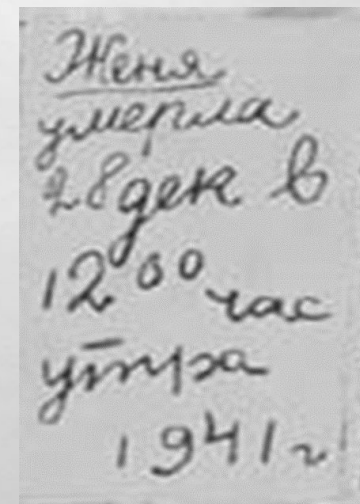 Женя
умерла
28 дек в
12 00 час
утра
1941 г